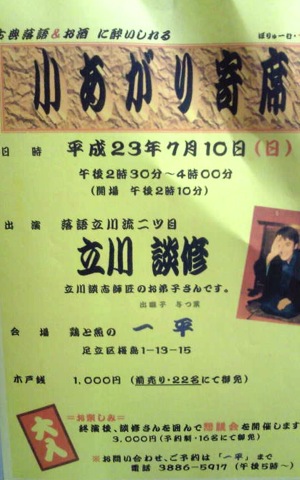 古典落語&お酒 に酔いしれる
ばりゅーむ・
小あがり寄席
日 時 平成23年7月10日(日)
午後2時30分～4時00分
(開場 午後2時10分)
出 演 落語立川流二ツ目
立川 談修
立川談志師匠のお弟子さんです。
会 場 鶏と魚の 一平
足立区梅島1-13-15
木戸銭 1,000円 (前売り・22名にて御免)
大入
=お楽しみ=
終演後、談修さんを囲んで懇談会を開催します
3,000円(予約制・16名にて御免)
※お問い合わせ、ご予約は「一平」まで
電話 3886-5917(午後5時～)